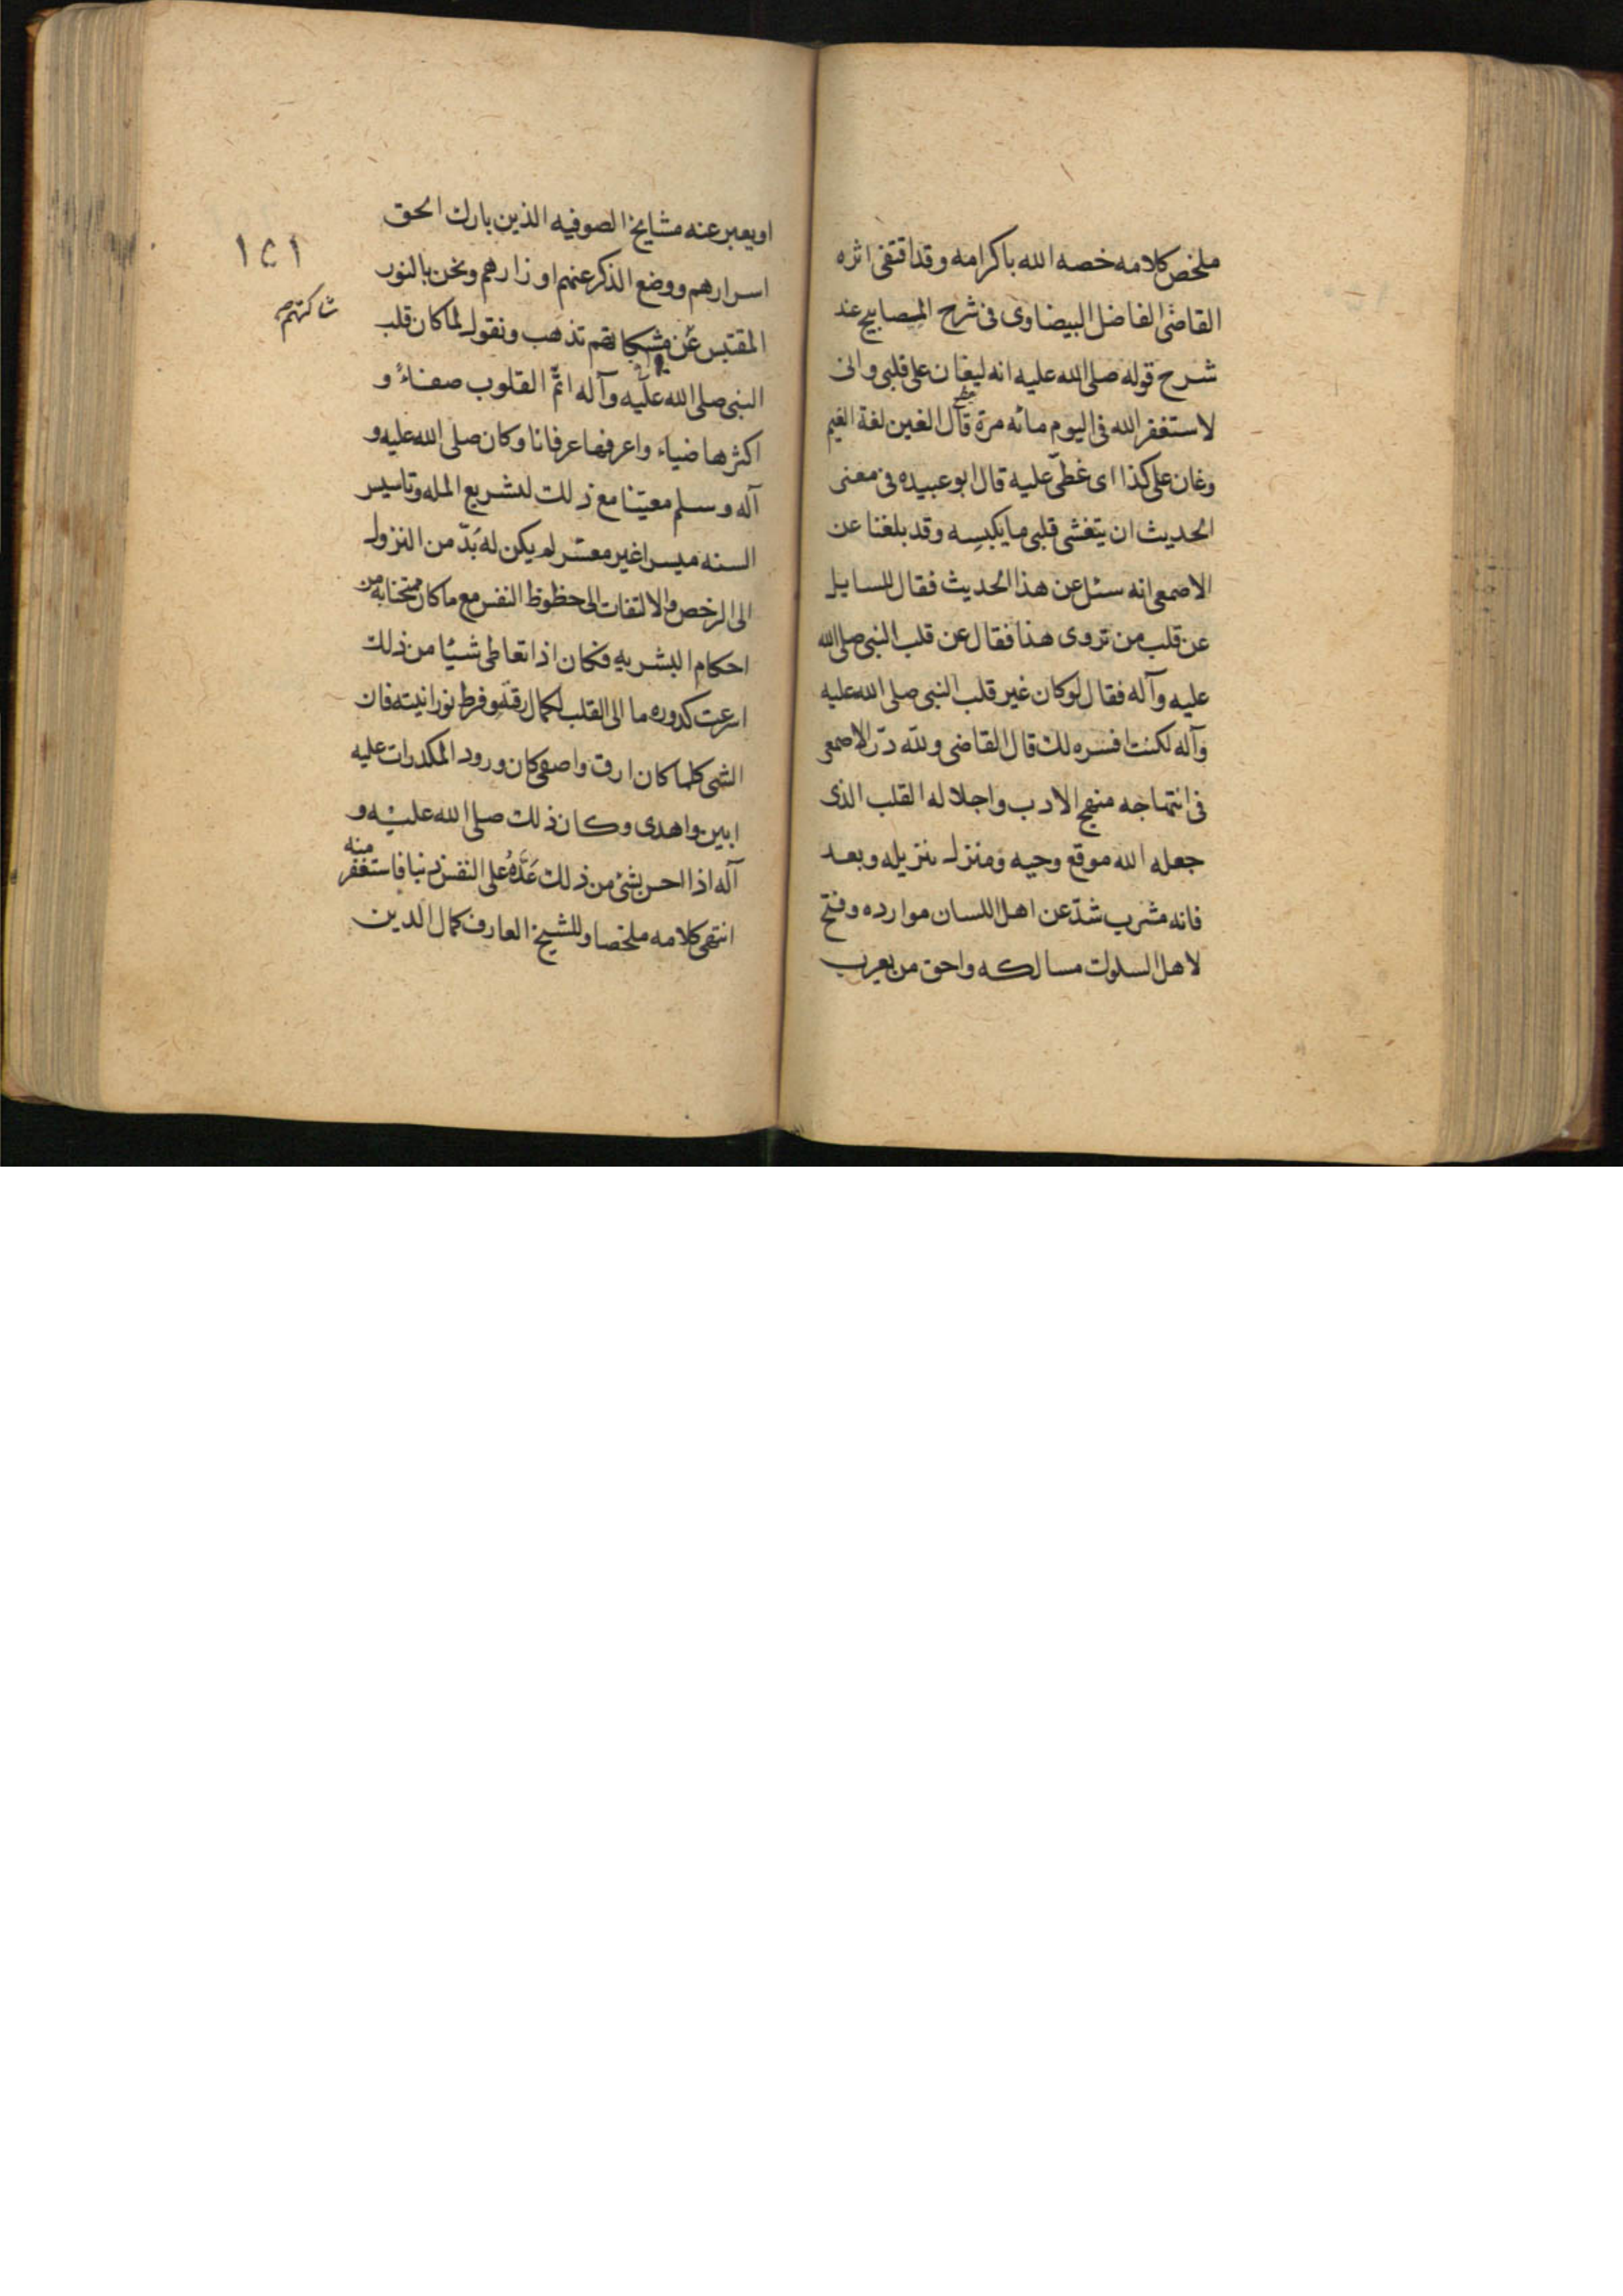 ملخص كلامه خصه الله باكرامه وقد اقتفى اثره
القاضى الفاضل البيضاوى فى شرح المصابيح عند
شرح قوله صلى الله عليه انه ليغان على قلبى وانى
لاستغفر الله فى اليوم مائه مرة قال الغين لغة الغيم
وغان على كذا اى غطى عليه قال ابو عبيده فى معنى
الحديث ان يتغشى قلبى ما يكبسه وقد بلغنا عن
الاصمعى انه سئل عن هذا الحديث فقال للسايل
عن قلب من تروى هذا فقال عن قلب النبى صلى الله
عليه وآله فقال لو كان غير قلب النبى صلى الله عليه
وآله لكنت افسره لك قال القاضى ولله درّ الاصمعى
فى انتهاجه منهج الادب واجلاله القلب الذى
جعله الله موقع وحيه ومنزل تنزيله وبعد
فانه مشرب شدّ عن اهل اللسان موارده وفتح
لاهل السلوك مسالكه واحق من يعرب
او يعبر عنه مشايخ الصوفيه الذين بارك الحق
اسرارهم ووضع الذكر عنهم اوزارهم ونحن بالنور
المقتبس عن مشكاتهم نذهب ونقول لما كان قلب
النبى صلى الله عليه وآله اتمّ القلوب صفاءً و
اكثرها ضياء واعرفها عرفانا وكان صلى الله عليه و
آله وسلم معيّنا مع ذلك لتشريع المله وتاسيس
السنه ميسرا غير معسّر لم يكن له بُدّ من النزول
الى الرخص والالتفات الى حظوظ النفس مع ما كان ممتحنا به من
احكام البشريه فكان اذا تعاطى شيئا من ذلك
اسرعت كدوره ما الى القلب لكمال رقته وفرط نورانيته فان
الشى كلما كان ارق واصفى كان ورود المكدرات عليه
ابين واهدى وكان ذلك صلى الله عليه و
آله اذا احس بشئ من ذلك عَدَّهُ على النفس ذنبا فاستغفر منه
انتهى كلامه ملخصا وللشيخ العارف كمال الدين
١٤١